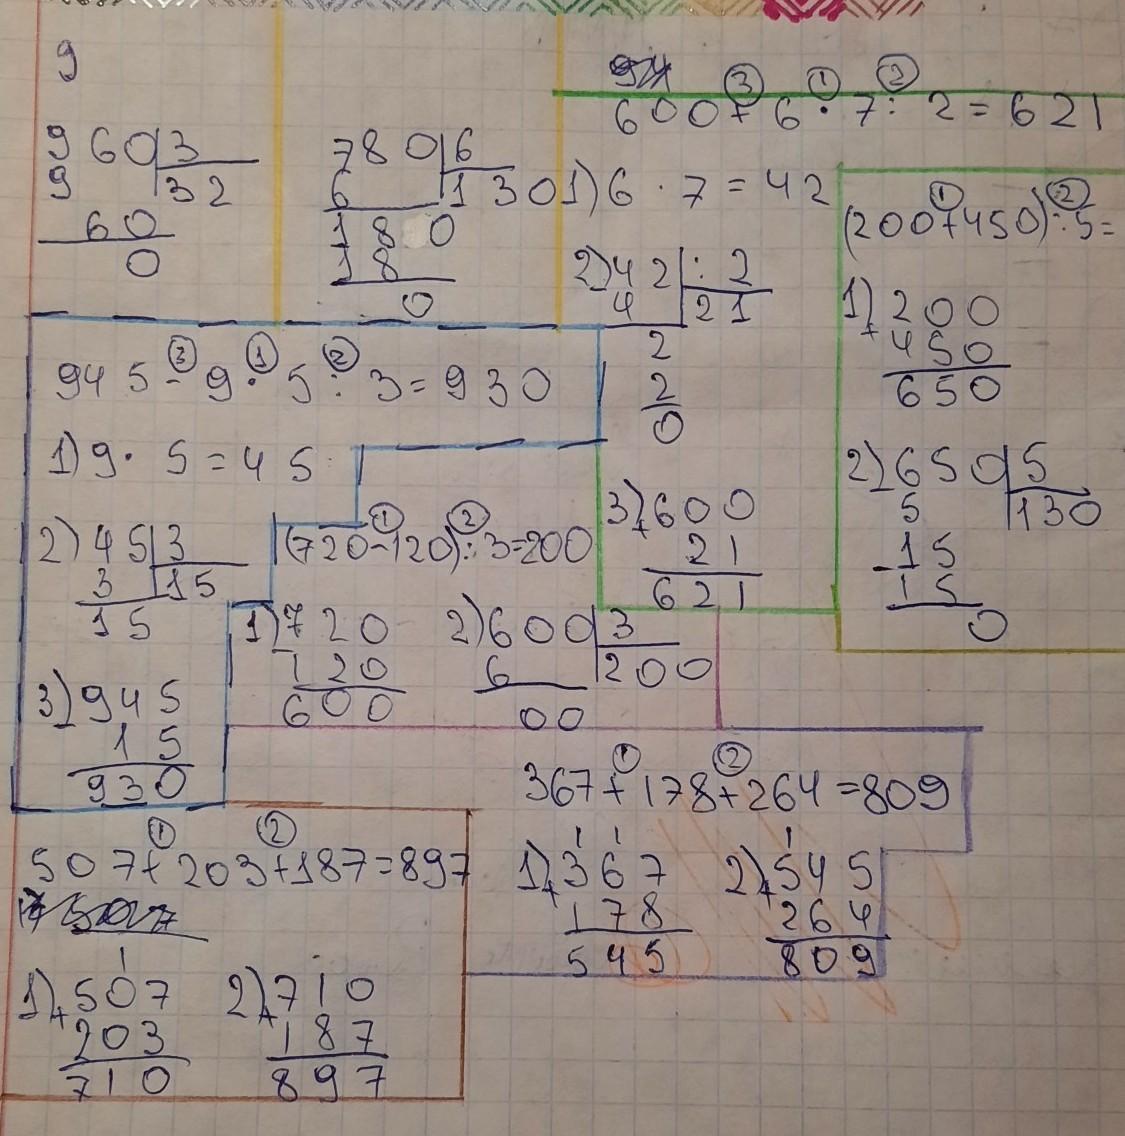 9
960 3
9 32
60
0
780 6
6 130
180
18
0
③ ① ②
600+6·7:2=621
1) 6·7=42
2) 42 : 2
4 21
2
2
0
3) 600
+
21
621
① ②
(200+450):5=
1) 200
+
450
650
2) 650 5
5 130
- 15
15
0
③ ① ②
945-9·5:3=930
1) 9·5=45
2) 45 3
3 15
15
3) 945
15
930
① ②
(720-120):3=200
1) 720
120
600
2) 600 3
6 200
00
① ②
367+178+264=809
1 1
1) 367
+
178
545
1
2) 545
+
264
809
① ②
507+203+187=897
1
1) 507
+
203
710
2) 710
+
187
897